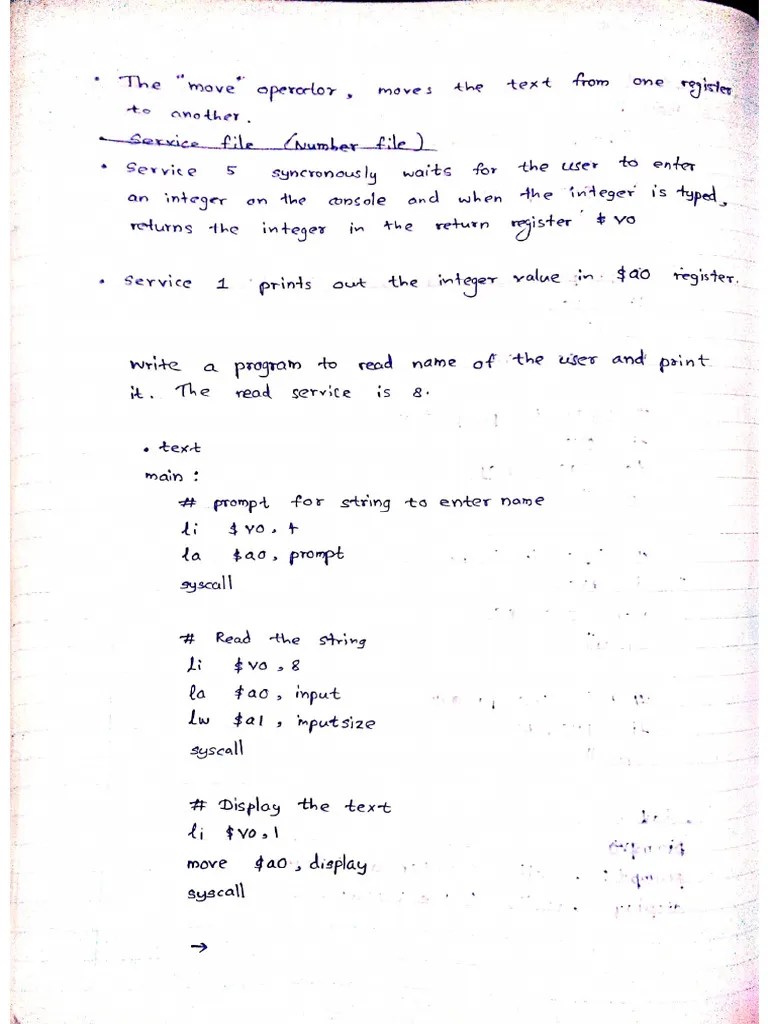 • The "move" operator, moves the text from one register
to another.
• Service file (Number file)
• Service 5 syncronously waits for the user to enter
an integer on the console and when the integer is typed,
returns the integer in the return register $ v0
• Service 1 prints out the integer value in $a0 register.
Write a program to read name of the user and print
it. The read service is 8.
. text
main :
# prompt for string to enter name
li $v0, 4
la $a0, prompt
syscall
# Read the string
li $v0, 8
la $a0, input
lw $a1, inputsize
syscall
# Display the text
li $v0, 1
move $a0, display
syscall
→